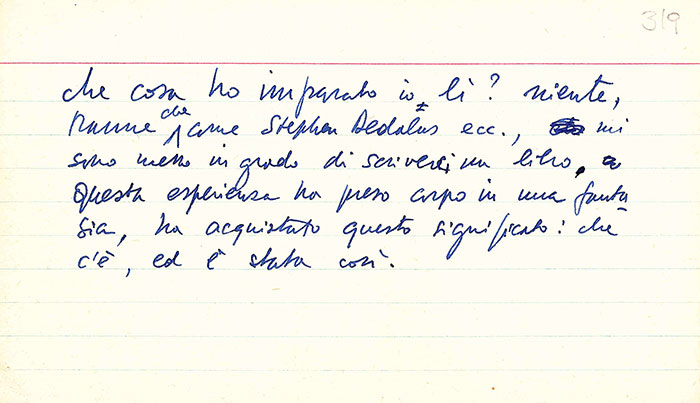 319
che cosa ho imparato io lì? niente,
tranne che come Stephen Dedalus ecc., mi
sono messo in grado di scriverci un libro.
Questa esperienza ha preso corpo in una fanta
sia, ha acquistato questo significato: che
c'è, ed è stata così.